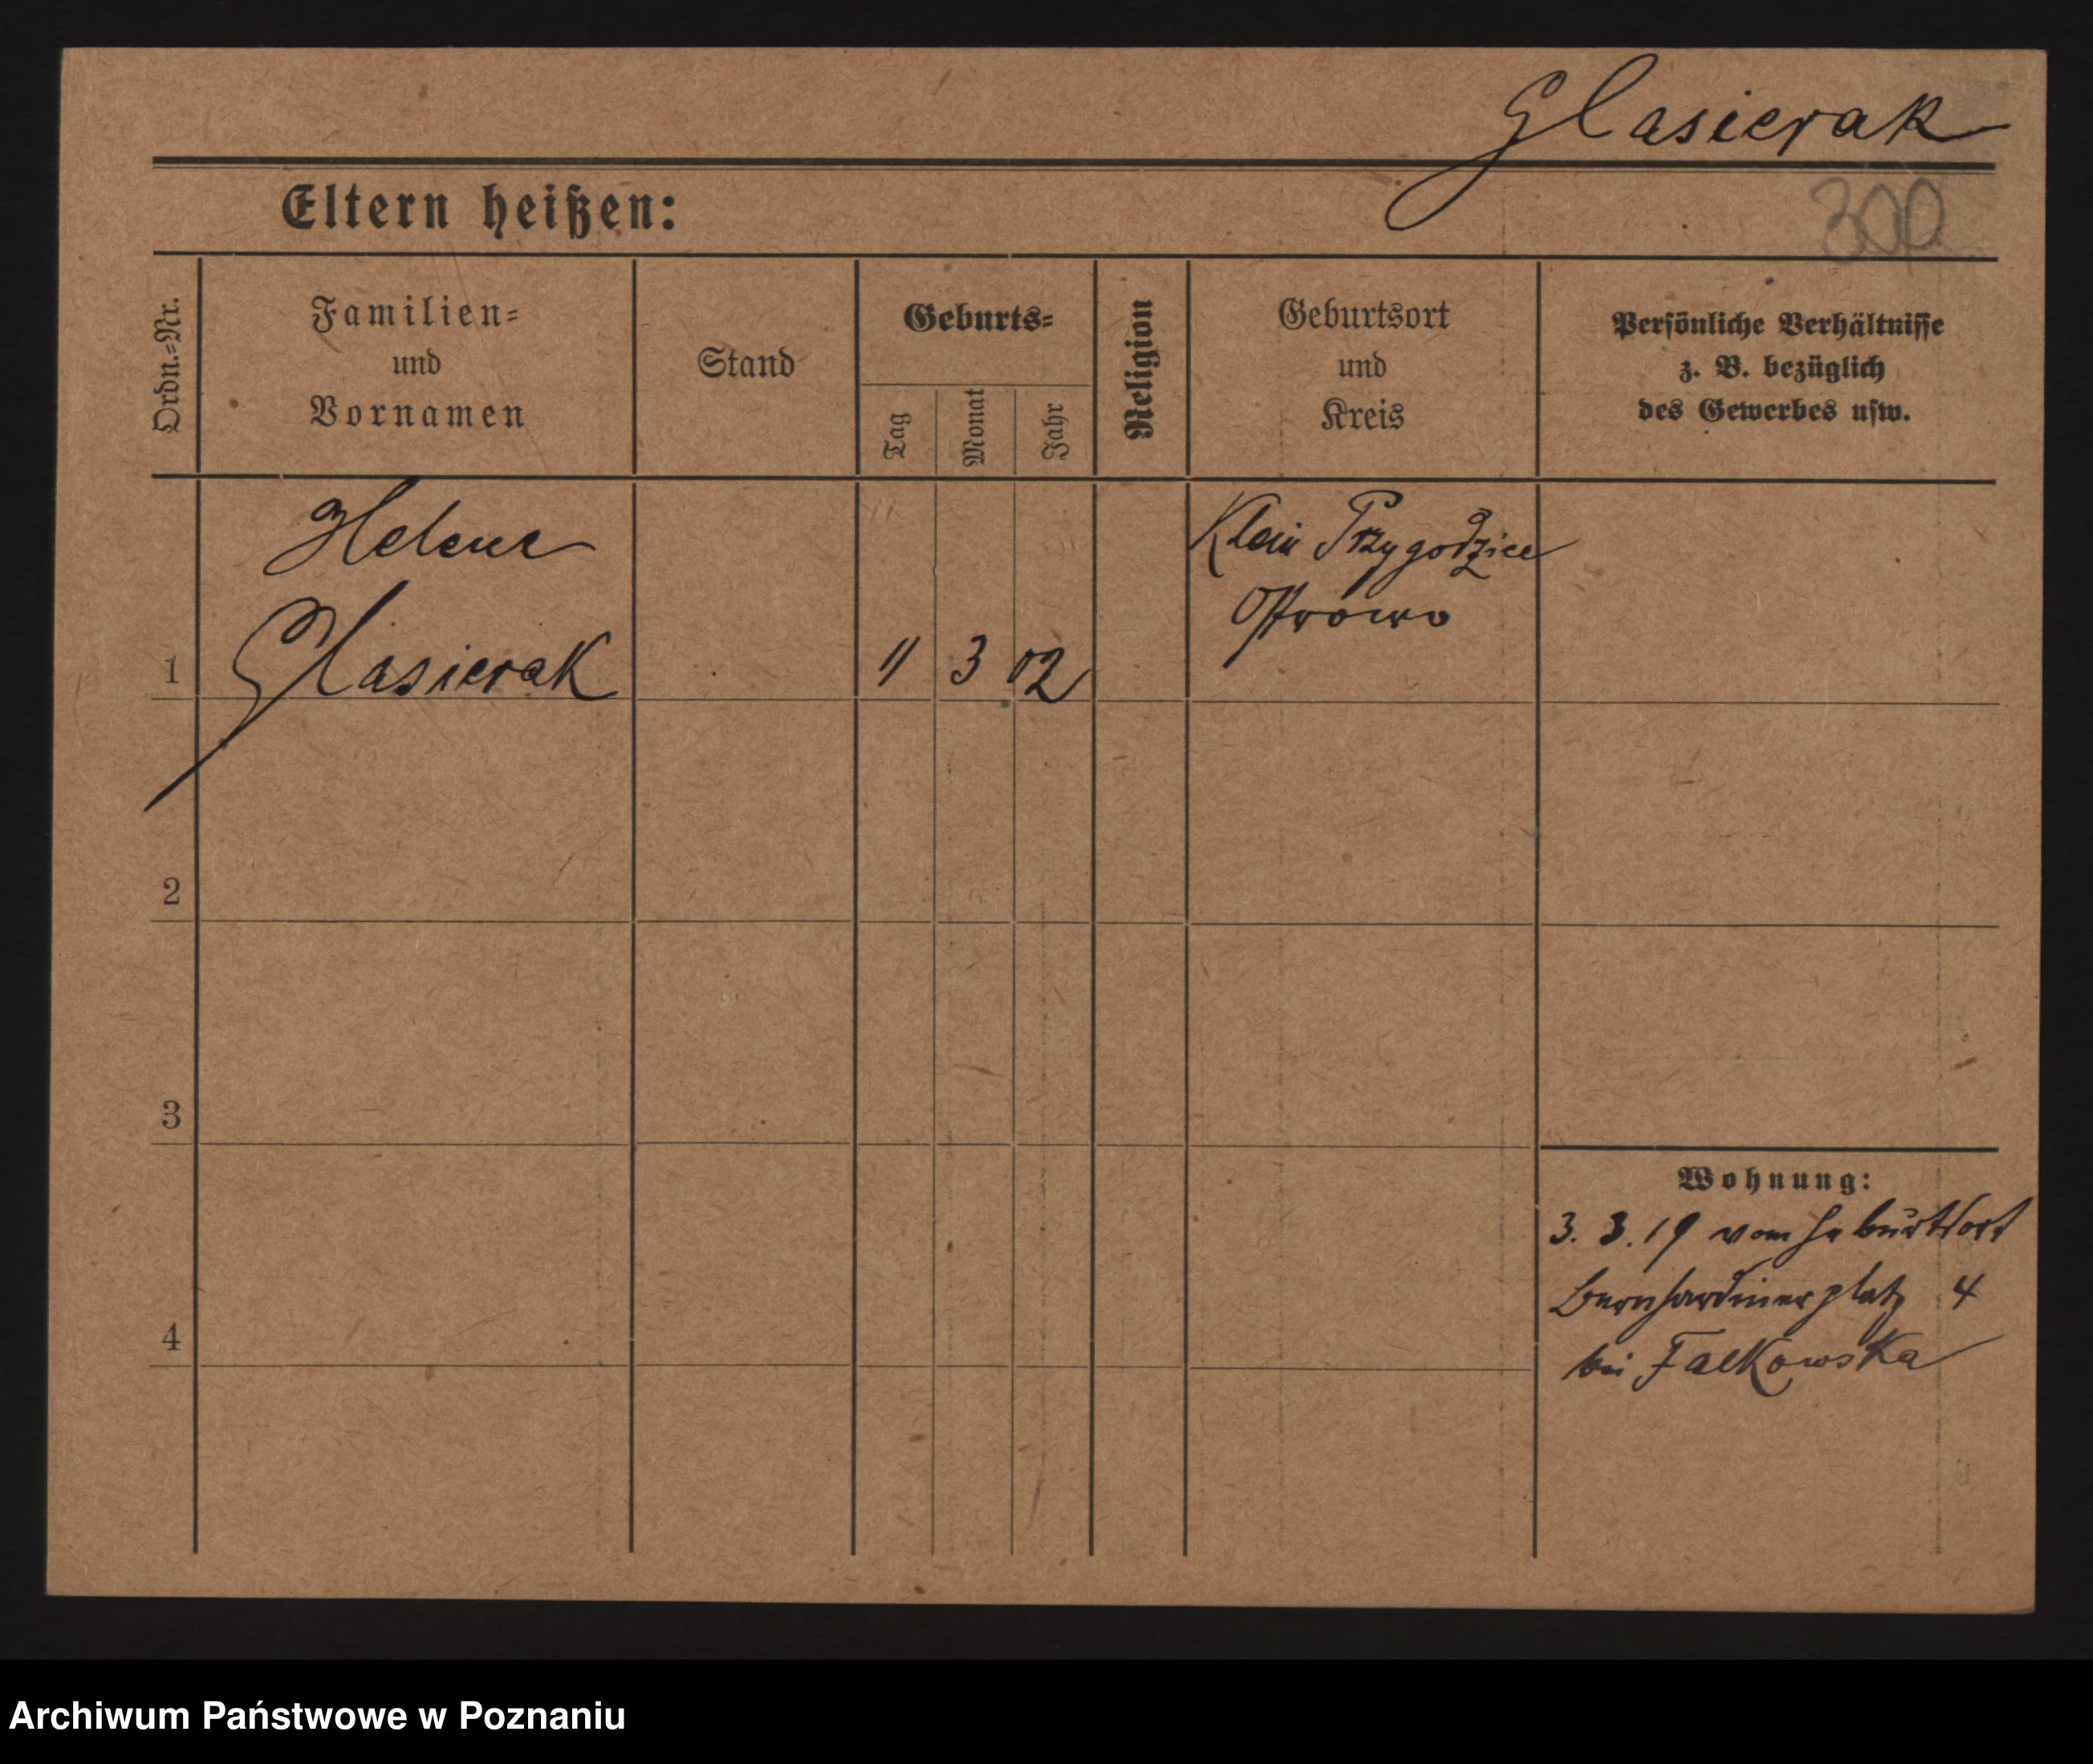 Glasierak
Eltern heißen:
300
Ordn.=Nr.
Familien=
und
Vornamen
Stand
Geburts=
Tag
Monat
Jahr
Religion
Geburtsort
und
Kreis
Persönliche Verhältnisse
z. B. bezüglich
des Gewerbes usw.
Helene
Glasierak
1
11 3 02
Klein Przygodzice
Ostrowo
2
3
4
Wohnung:
3. 3. 19 vom Geburtsort
Bernhardinerplatz 4
bei Falkowska
Archiwum Państwowe w Poznaniu